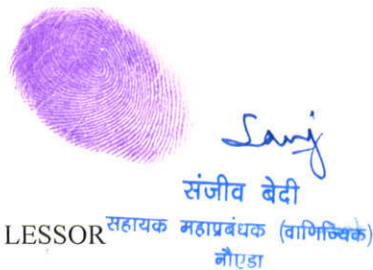 Sanj
संजीव बेदी
LESSOR सहायक महाप्रबंधक (वाणिज्यिक)
नौएडा